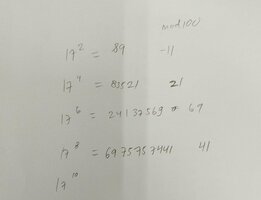 mod 100
17² = 89 -11
17⁴ = 83521 21
17⁶ = 24137569 69
17⁸ = 6975757441 41
17¹⁰